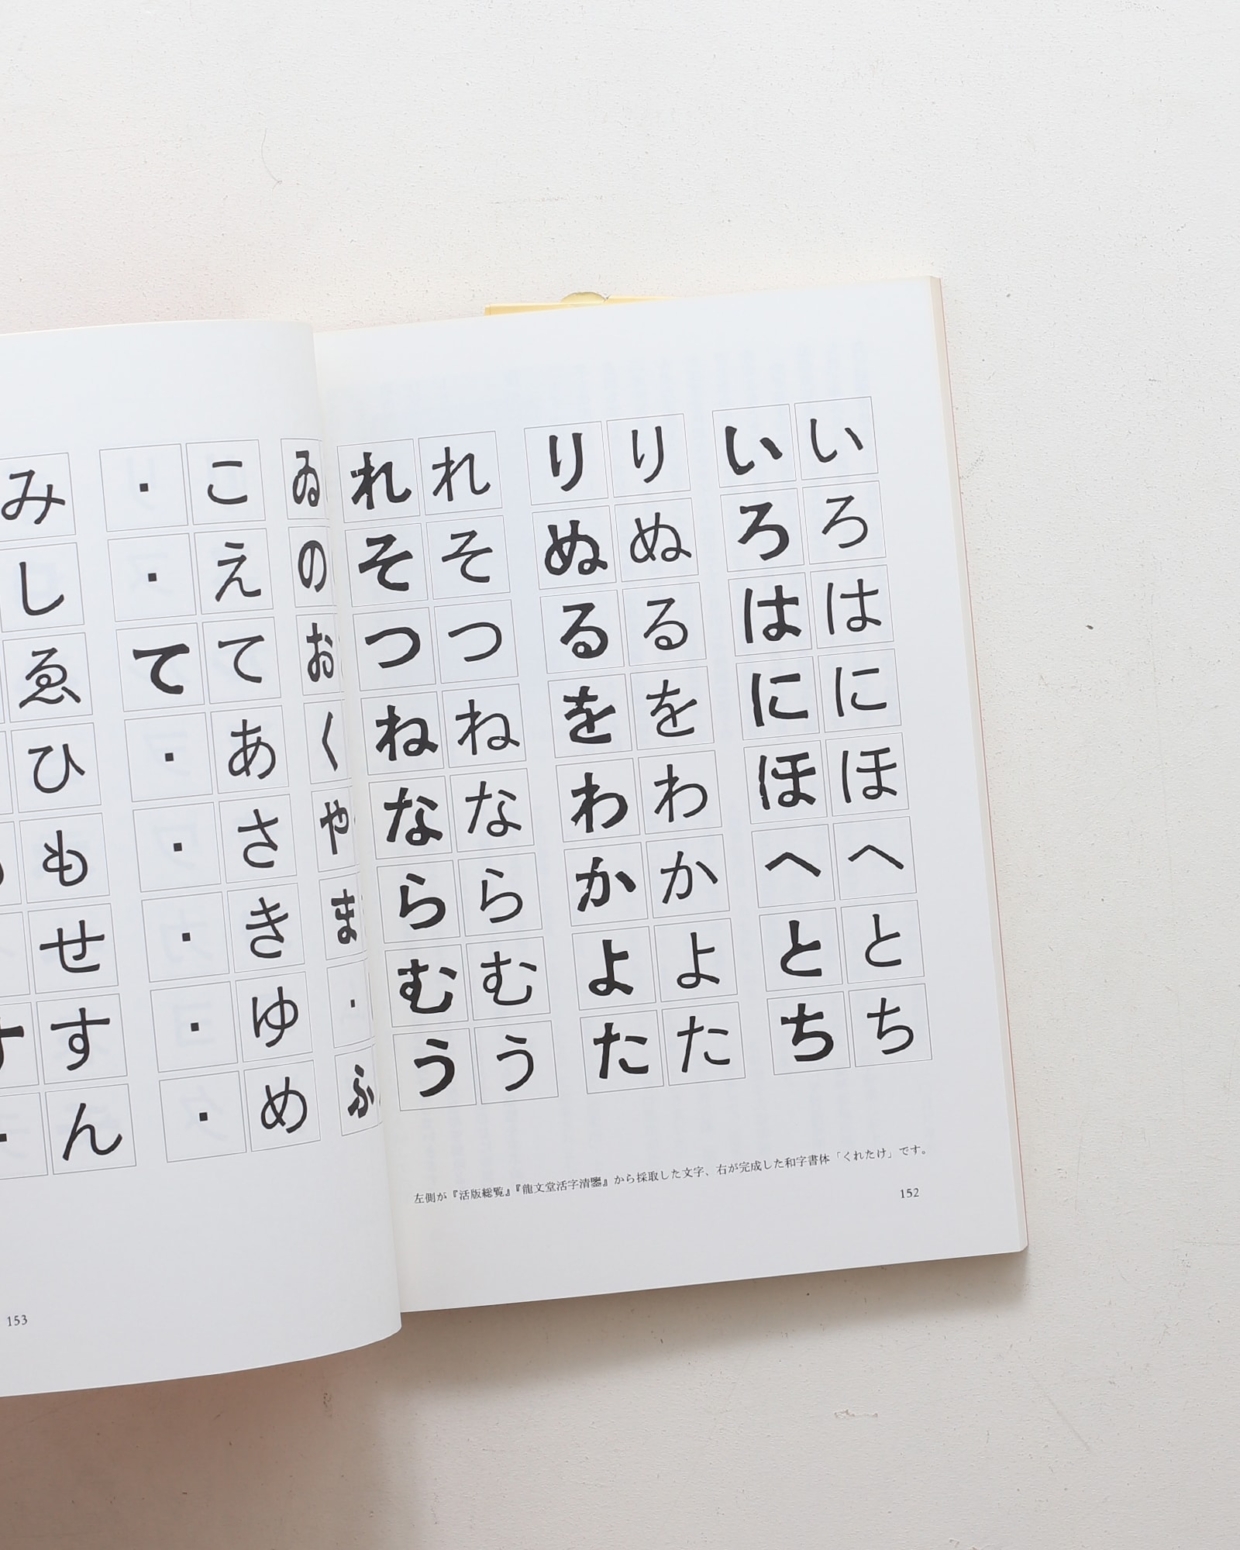 いろはにほへとち
いろはにほへとち
りぬるをわかよた
りぬるをわかよた
れそつねならむう
れそつねならむう
左側が『活版総覧』『龍文堂活字清鑑』から採取した文字、右が完成した和字書体「くれたけ」です。
152
ゐのおくやま・ふ
こえてあさきゆめ
・・て・・・・・
みしゑひもせすん
153